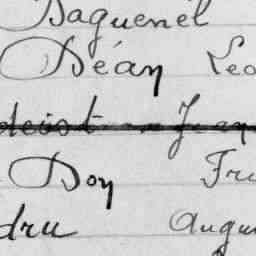 Daguenel
Déan Leo
Jean
Doy Fr
dru Augu